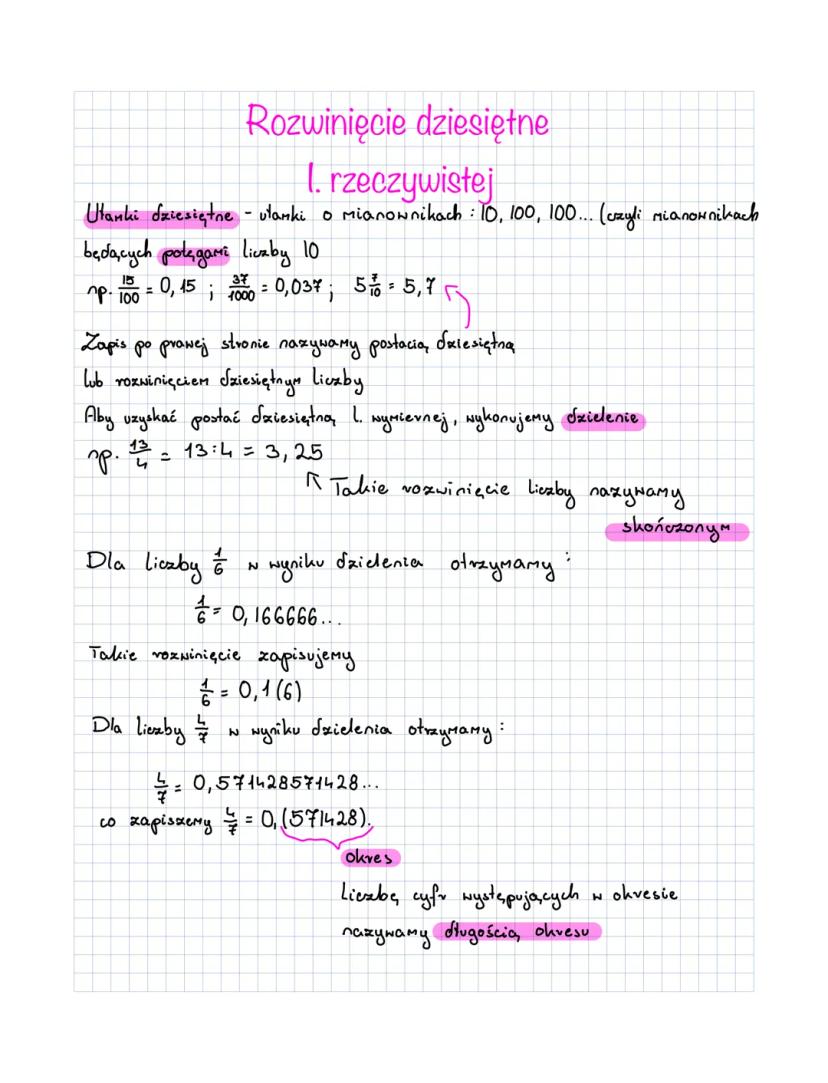 Rozwinięcie dziesiętne
l. rzeczywistej
Ułamki dziesiętne - ułamki o mianownikach : 10, 100, 100... (czyli mianownikach
będących potęgami liczby 10
np. 15/100 = 0,15 ; 37/1000 = 0,037 ; 5 7/10 = 5,7
Zapis po prawej stronie nazywamy postacią dziesiętną
lub rozwinięciem dziesiętnym liczby
Aby uzyskać postać dziesiętną l. wymiernej, wykonujemy dzielenie
np. 13/4 = 13:4 = 3,25
Takie rozwinięcie liczby nazywamy
skończonym
Dla liczby 1/6 w wyniku dzielenia otrzymamy :
1/6 = 0,166666...
Takie rozwinięcie zapisujemy
1/6 = 0,1(6)
Dla liczby 4/7 w wyniku dzielenia otrzymamy :
4/7 = 0,571428571428...
co zapiszemy 4/7 = 0,(571428).
okres
Liczbę cyfr występujących w okresie
nazywamy długością okresu